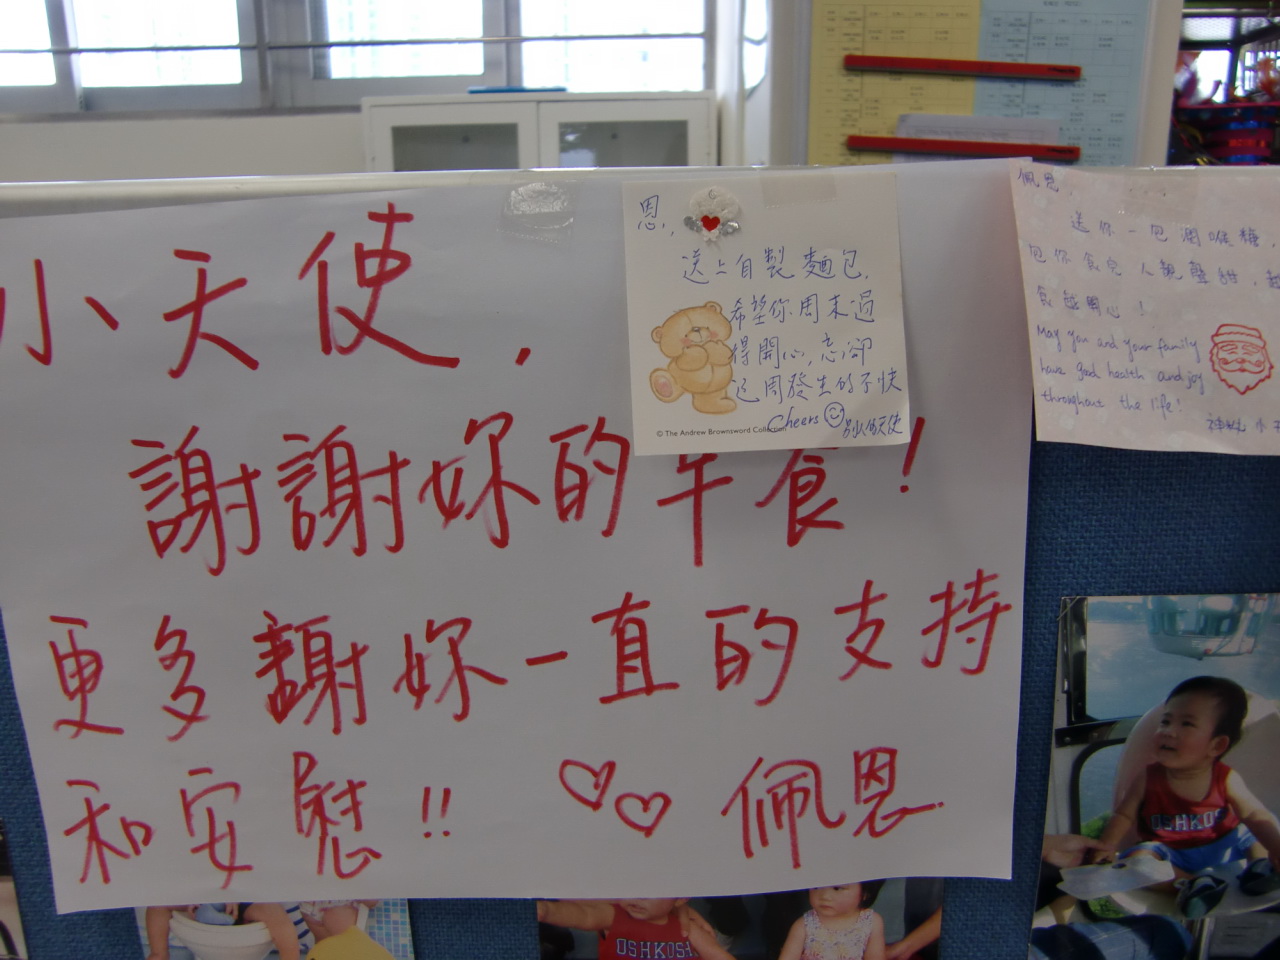 小天使,
謝謝妳的午食!
更多謝妳一直的支持
和安慰!!
佩恩
恩,
送上自製麵包,
希望你周末過
得開心,忘卻
這周發生的不快
Cheers
© The Andrew Brownsword Collection
佩恩,
送你一包潤喉糖,
包你食完人靚聲甜,越
食越開心!
May you and your family
have good health and joy
throughout the life!
OSHKOS
OSHKOS